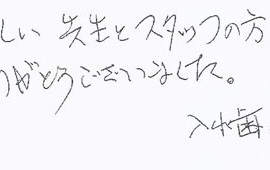 しい 先生とスタッフの方
りがとうございました。
入れ歯